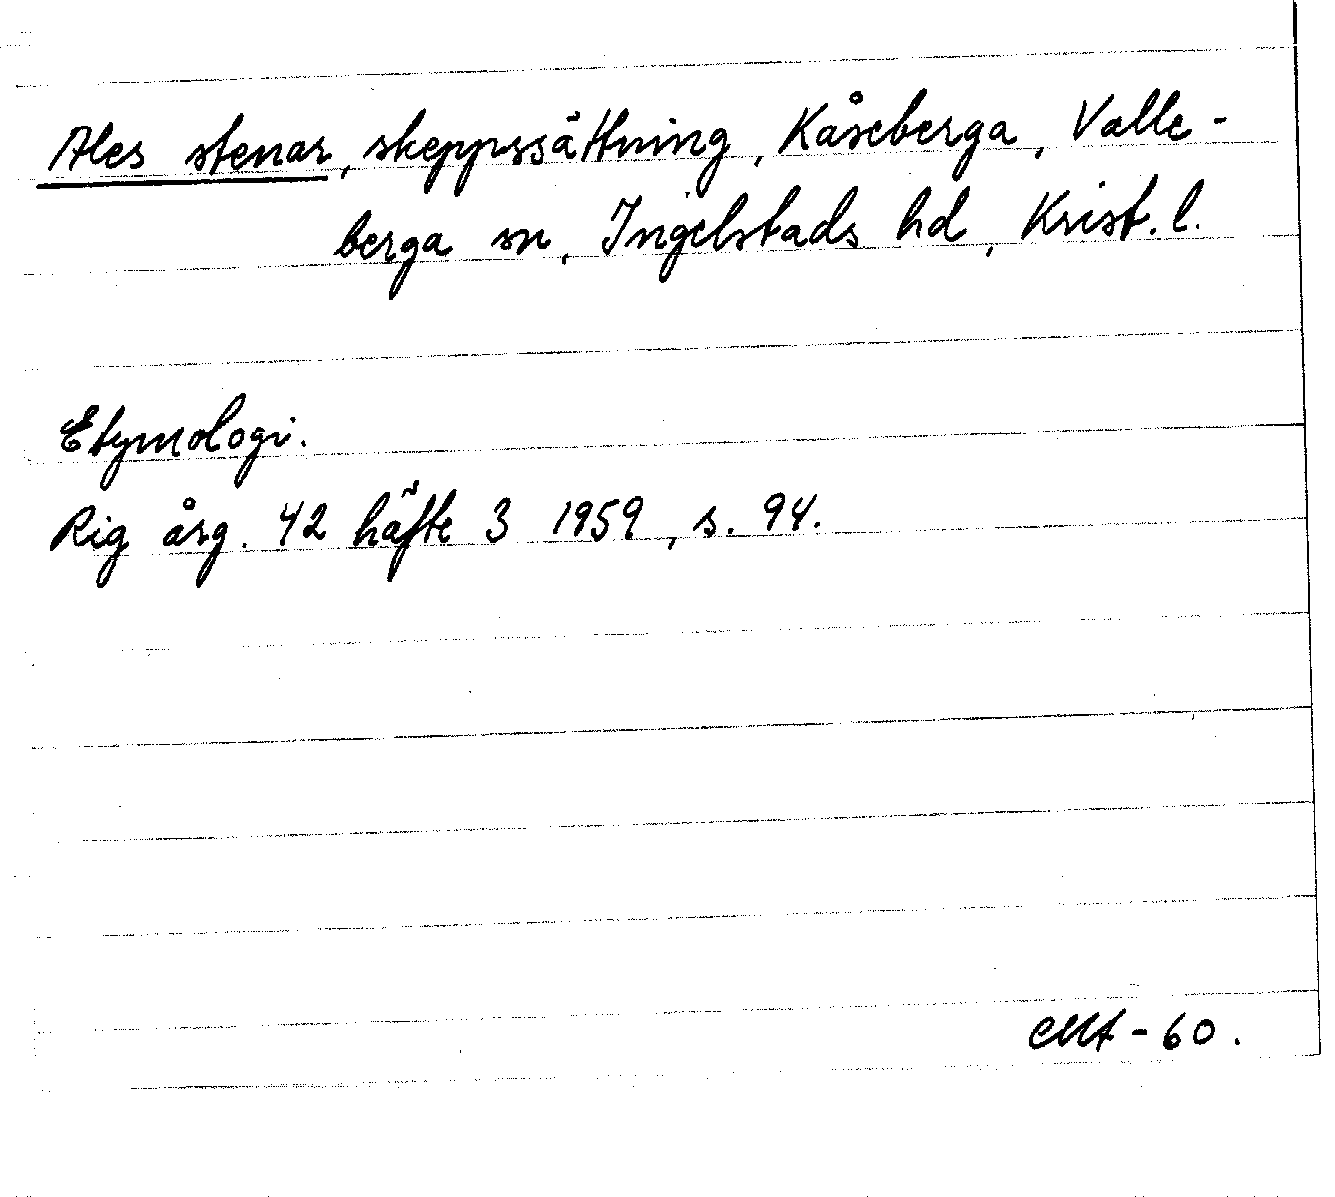 Ales stenar, skeppssättning, Kåseberga, Valle-
berga sn, Ingelstads hd, Krist. l.
Etymologi.
Rig årg. 42 häfte 3 1959, s. 94.
-60.